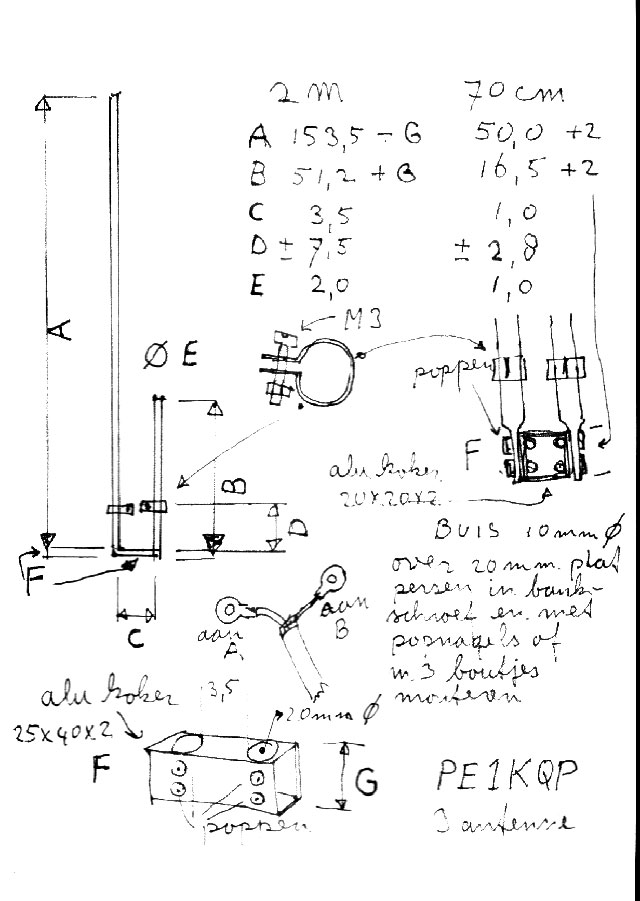 2 M 70 cm
A 153,5 - G 50,0 +2
B 51,2 + G 16,5 +2
C 3,5 1,0
D ± 7,5 ± 2,8
E 2,0 1,0
M3
A
Ø E
poppen
B
F
alu koker
20x20x2
D
BUIS 10mm Ø
over 20mm plat
persen in bank-
schroef en met
popnagels of
m3 boutjes
monteren
F
C
aan
A
aan
B
alu koker
25x40x2
3,5
20mm Ø
F
G
poppen
PE1KQP
J antenne